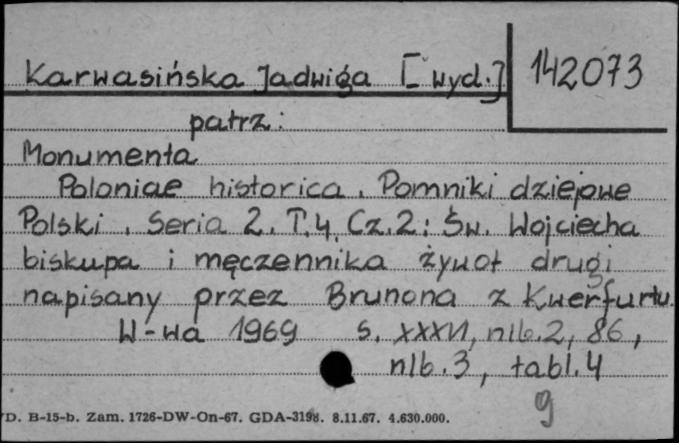 Karwasińska Jadwiga [wyd.] 142073
patrz:
Monumenta
Poloniae historica. Pomniki dziejowe
Polski. Seria 2. T.4. Cz.2: Św. Wojciecha
biskupa i męczennika żywot drugi
napisany przez Brunona z Kwerfurtu.
W-wa 1969 s. XXXVI, nlb.2, 86,
nlb.3, tabl.4
g
D. B-15-b. Zam. 1726-DW-On-67. GDA-3198. 8.11.67. 4.630.000.